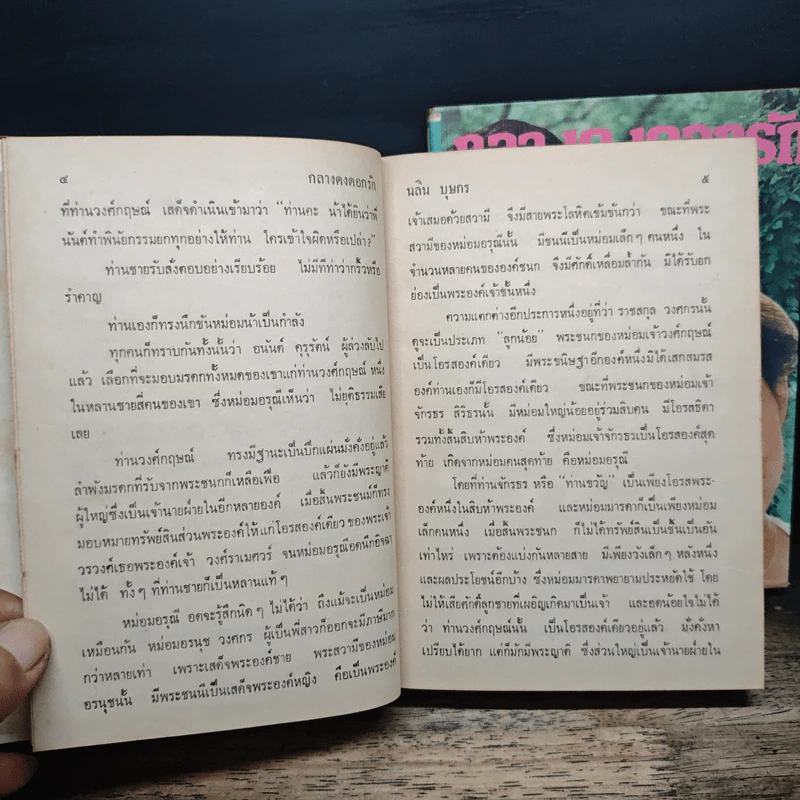 ๔ กลางดงดอกรัก
ที่ท่านวงศ์กฤษณ์ เสด็จดำเนินเข้ามาว่า "ท่านคะ น้าได้ยินว่าพี่
นันต์ทำพินัยกรรมยกทุกอย่างให้ท่าน ใครเข้าใจผิดหรือเปล่า?"
ท่านชายรับสั่งตอบอย่างเรียบร้อย ไม่มีทีท่าว่ากริ้วหรือ
รำคาญ
ท่านเองก็ทรงนึกขันหม่อมน้าเป็นกำลัง
ทุกคนก็ทราบกันทั้งนั้นว่า อนันต์ คุรุรัตน์ ผู้ล่วงลับไป
แล้ว เลือกที่จะมอบมรดกทั้งหมดของเขาแก่ท่านวงศ์กฤษณ์ หนึ่ง
ในหลานชายสี่คนของเขา ซึ่งหม่อมอรุณีเห็นว่า ไม่ยุติธรรมเสีย
เลย
ท่านวงศ์กฤษณ์ ทรงมีฐานะเป็นปึกแผ่นมั่งคั่งอยู่แล้ว
ลำพังมรดกที่รับจากพระชนกก็เหลือเฟือ แล้วก็ยังมีพระญาติ
ผู้ใหญ่ซึ่งเป็นเจ้านายฝ่ายในอีกหลายองค์ เมื่อสิ้นพระชนม์ก็ทรง
มอบหมายทรัพย์สินส่วนพระองค์ให้แก่โอรสองค์เดียวของพระเจ้า
วรวงค์เธอพระองค์เจ้า วงศ์ราเมศวร์ จนหม่อมอรุณีอดนึกอิจฉา
ไม่ได้ ทั้งๆ ที่ท่านชายก็เป็นหลานแท้ๆ
หม่อมอรุณี อดจะรู้สึกนิดๆ ไม่ได้ว่า ถึงแม้จะเป็นหม่อม
เหมือนกัน หม่อมอรนุช วงศกร ผู้เป็นพี่สาวก็ออกจะมีภาษีมาก
กว่าหลายเท่า เพราะเสด็จพระองค์ชาย พระสวามีของหม่อม
อรนุชนั้น มีพระชนนีเป็นเสด็จพระองค์หญิง คือเป็นพระองค์
นลิน บุษกร ๕
เจ้าเสมอด้วยสวามี จึงมีสายพระโลหิตเข้มข้นกว่า ขณะที่พระ
สวามีของหม่อมอรุณีนั้น มีชนนีเป็นหม่อมเล็กๆ คนหนึ่ง ใน
จำนวนหลายคนขององค์ชนก จึงมีศักดิ์เหลื่อมล้ำกัน มิได้รับยก
ย่องเป็นพระองค์เจ้าชั้นหนึ่ง
ความแตกต่างอีกประการหนึ่งอยู่ที่ว่า ราชสกุล วงศกรนั้น
ดูจะเป็นประเภท "ลูกน้อย" พระชนกของหม่อมเจ้าวงศ์กฤษณ์
เป็นโอรสองค์เดียว มีพระขนิษฐาอีกองค์หนึ่งมิได้เสกสมรส
องค์ท่านเองก็มีโอรสองค์เดียว ขณะที่พระชนกของหม่อมเจ้า
จักรธร สิริธรนั้น มีหม่อมใหญ่น้อยอยู่ร่วมสิบคน มีโอรสธิดา
รวมทั้งสิ้นสิบห้าพระองค์ ซึ่งหม่อมเจ้าจักรธรเป็นโอรสองค์สุด
ท้าย เกิดจากหม่อมคนสุดท้าย คือหม่อมอรุณี
โดยที่ท่านจักรธร หรือ "ท่านขวัญ" เป็นเพียงโอรสพระ-
องค์หนึ่งในสิบห้าพระองค์ และหม่อมมารดาก็เป็นเพียงหม่อม
เล็กคนหนึ่ง เมื่อสิ้นพระชนก ก็ไม่ได้ทรัพย์สินเป็นชิ้นเป็นอัน
เท่าไหร่ เพราะต้องแบ่งกันหลายสาย มีเพียงวังเล็กๆ หลังหนึ่ง
และผลประโยชน์อีกบ้าง ซึ่งหม่อมมารดาพยายามประหยัดใช้ โดย
ไม่ให้เสียศักดิ์ลูกชายที่เผอิญเกิดมาเป็นเจ้า และอดน้อยใจไม่ได้
ว่า ท่านวงศ์กฤษณ์นั้น เป็นโอรสองค์เดียวอยู่แล้ว มั่งคั่งหา
เปรียบได้ยาก แต่ก็มักมีพระญาติ ซึ่งส่วนใหญ่เป็นเจ้านายฝ่ายใน